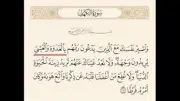 سورة الكهف
واصبر نفسك مع الذين يدعون ربهم بالغدوة والعشي
يريدون وجهه ولا تعد عيناك عنهم تريد زينة الحيوة
الدنيا ولا تطع من أغفلنا قلبه عن ذكرنا واتبع هوىه وكان
أمره فرطا ٢٨